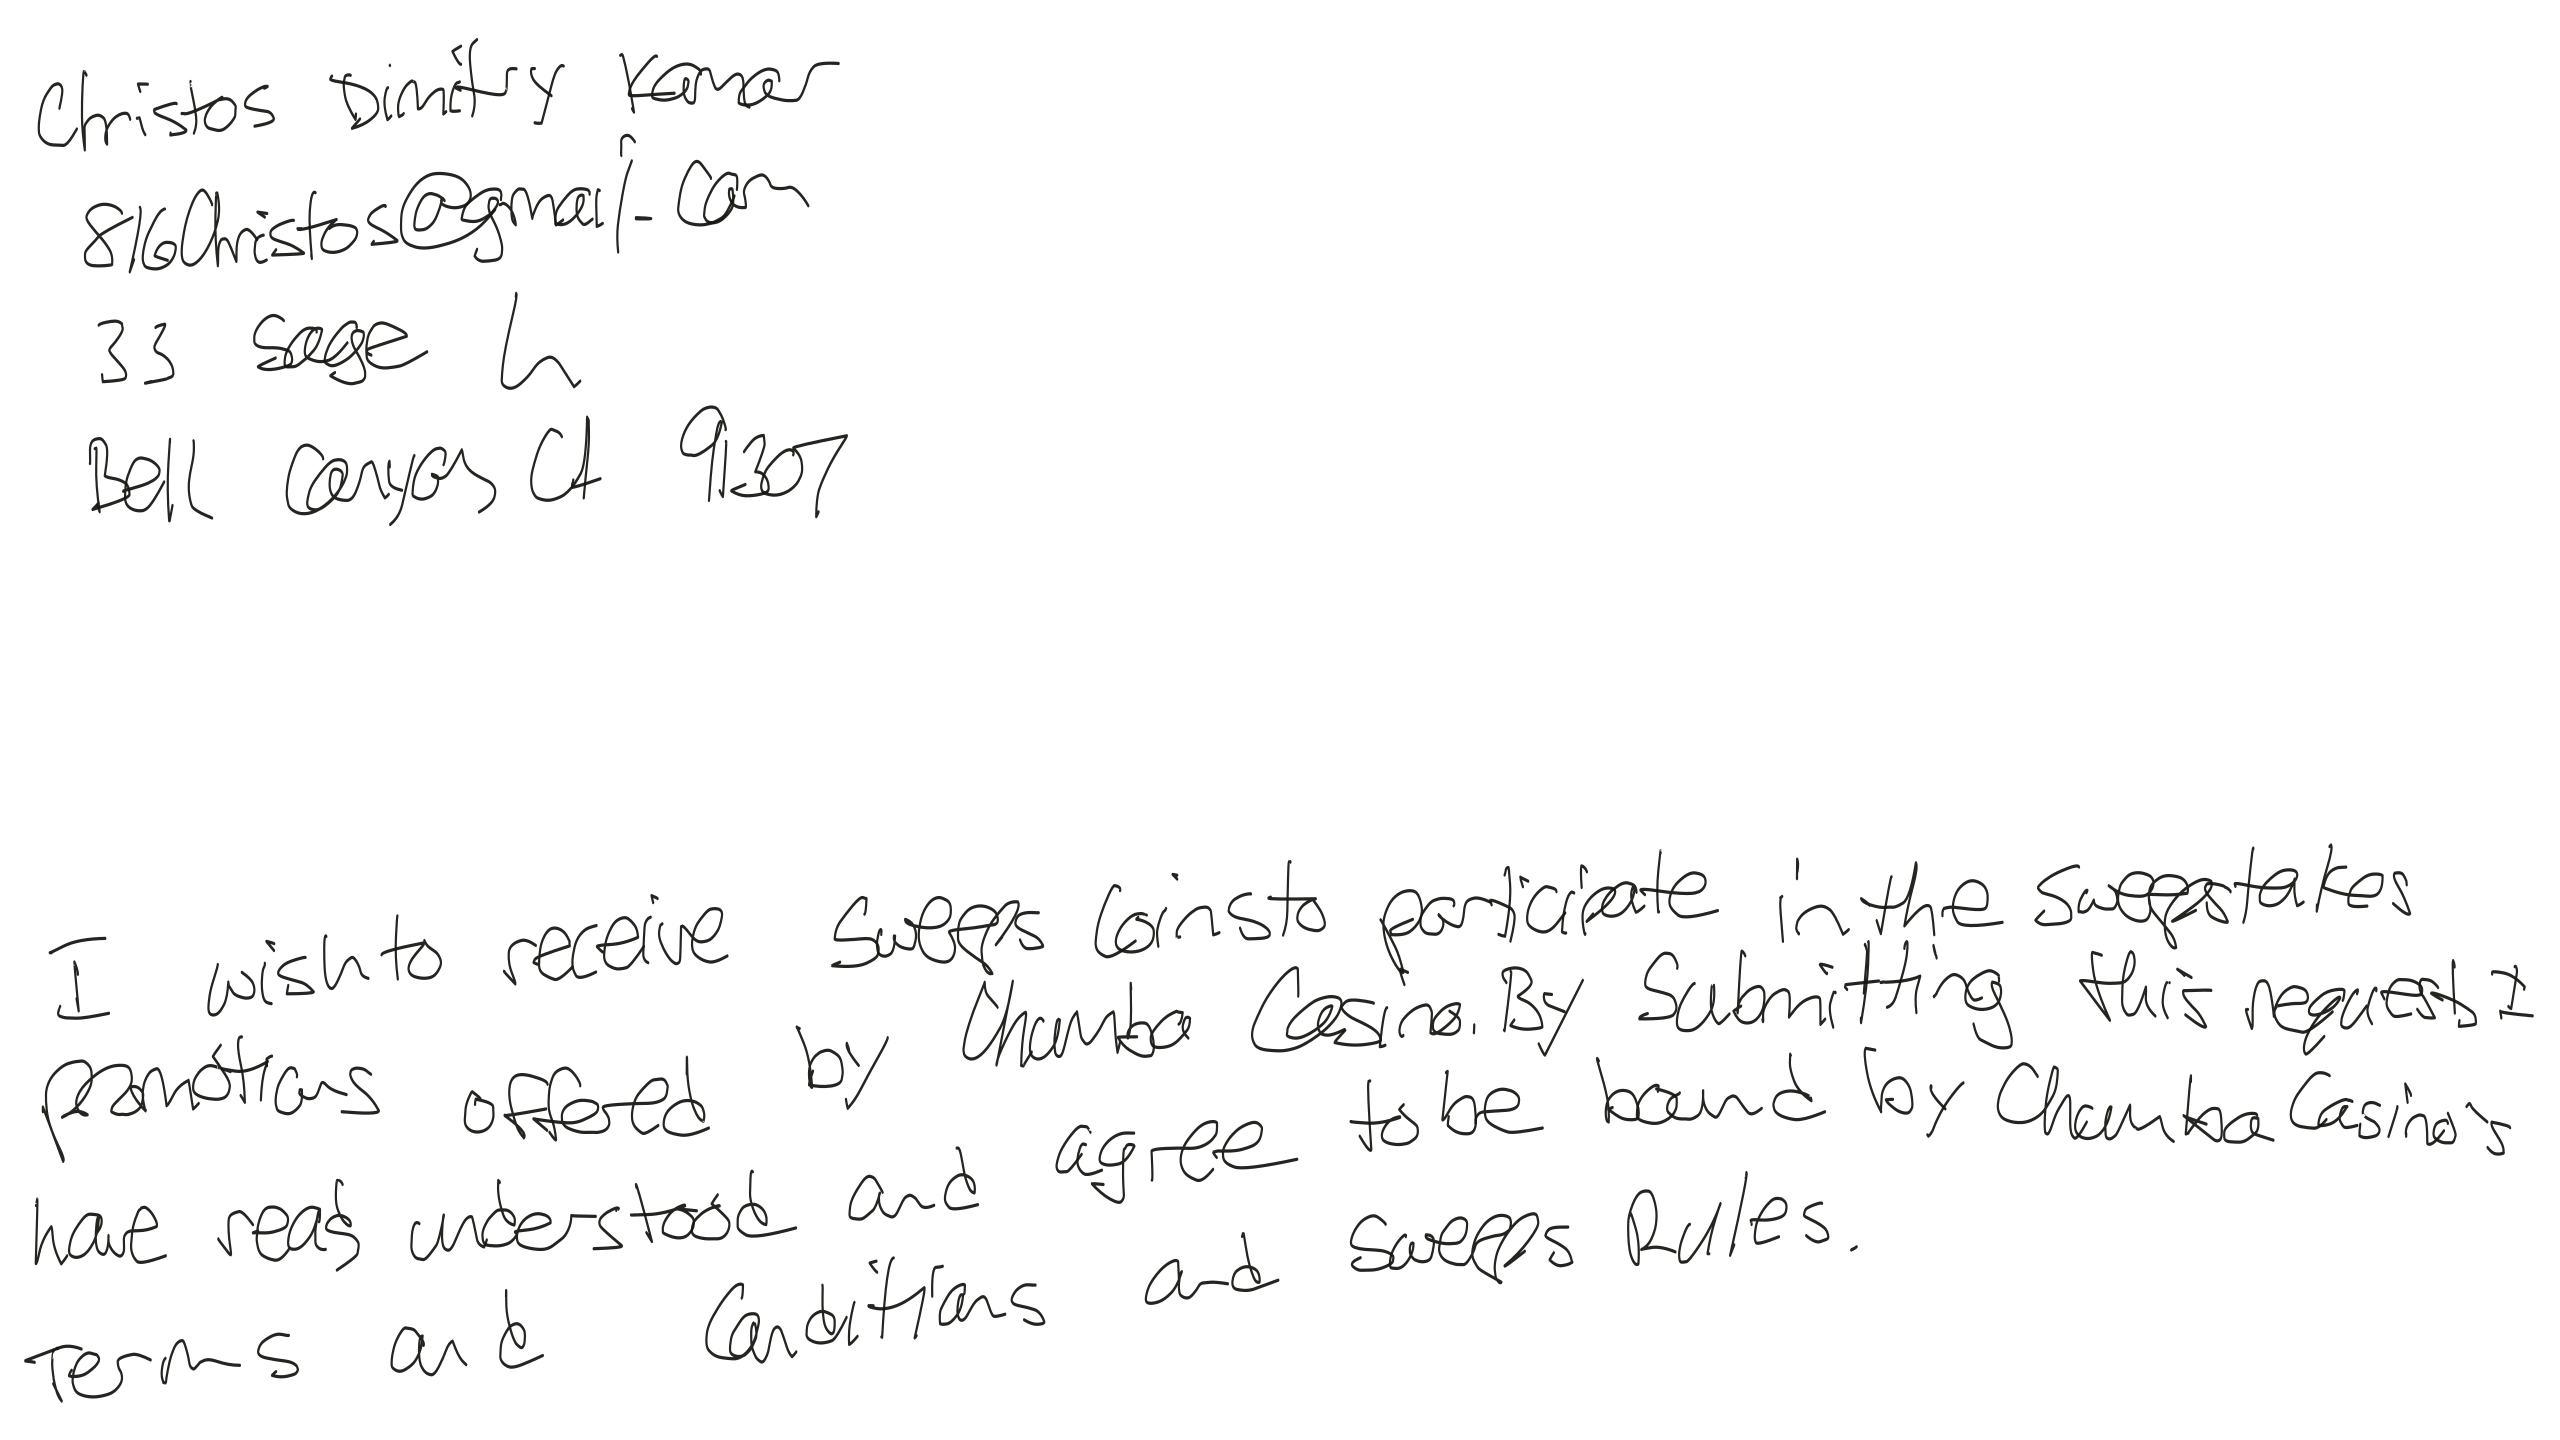 Christos Dimitry Kamar
816Christos@gmail.com
33 Sage Ln
Bell Canyon CA 91307
I wish to receive Sweeps Coins to participate in the sweepstakes
promotions offered by Chumba Casino. By Submitting this request I
have read understood and agree to be bound by Chumba Casino's
Terms and Conditions and Sweeps Rules.